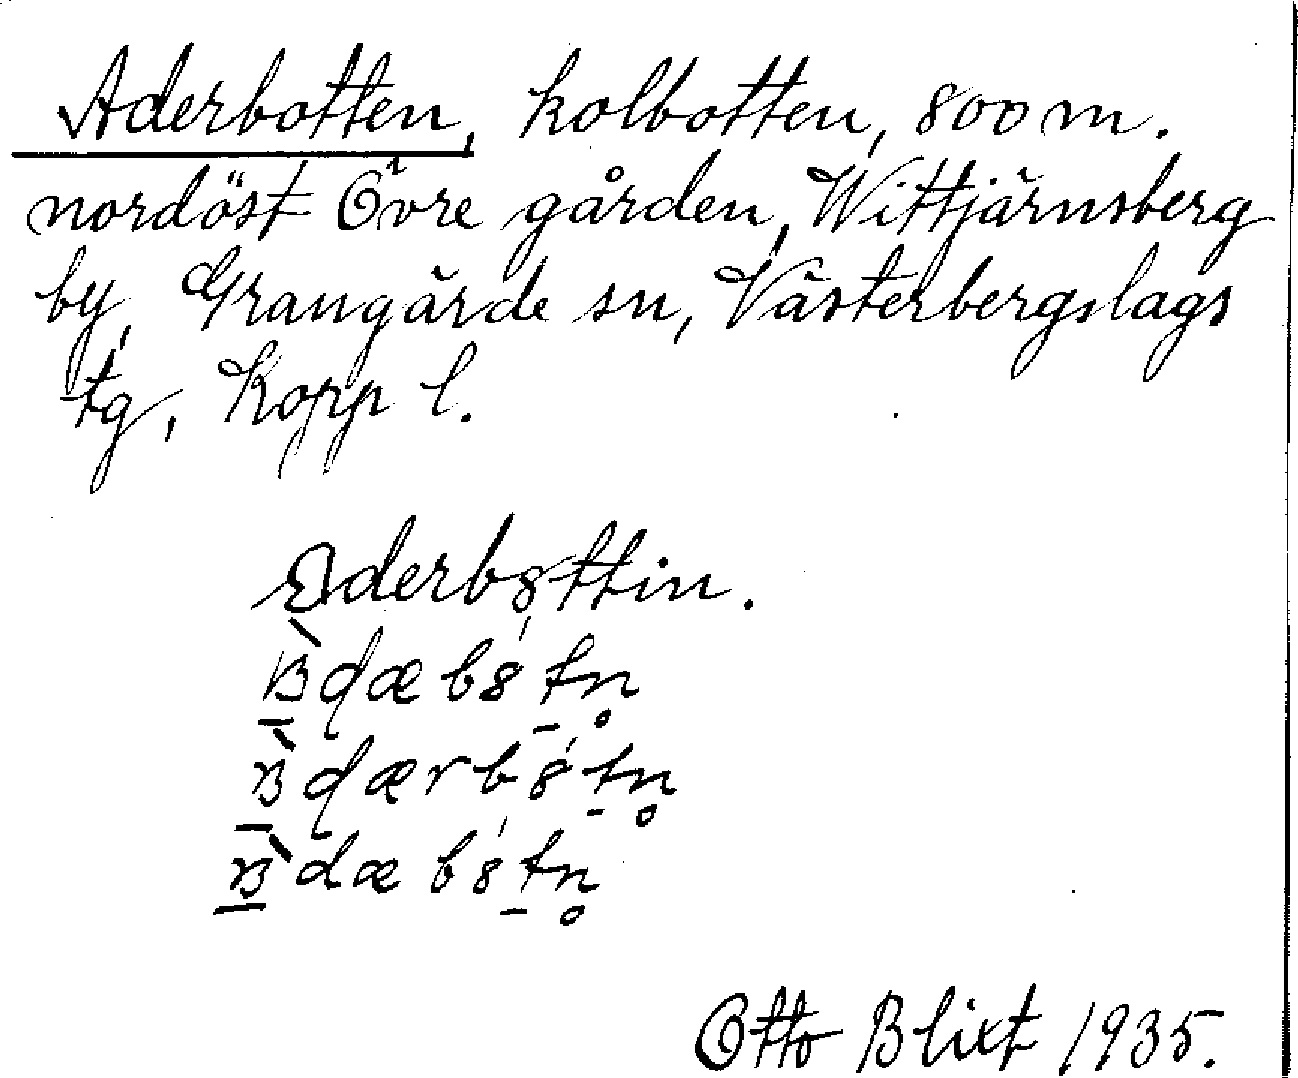 Aderbotten, kolbotten, 800 m.
nordöst Övre gården, Wittjärnsberg
by, Grangärde sn, Västerbergslags
tg, Kopp l.
Otto Blixt 1935.